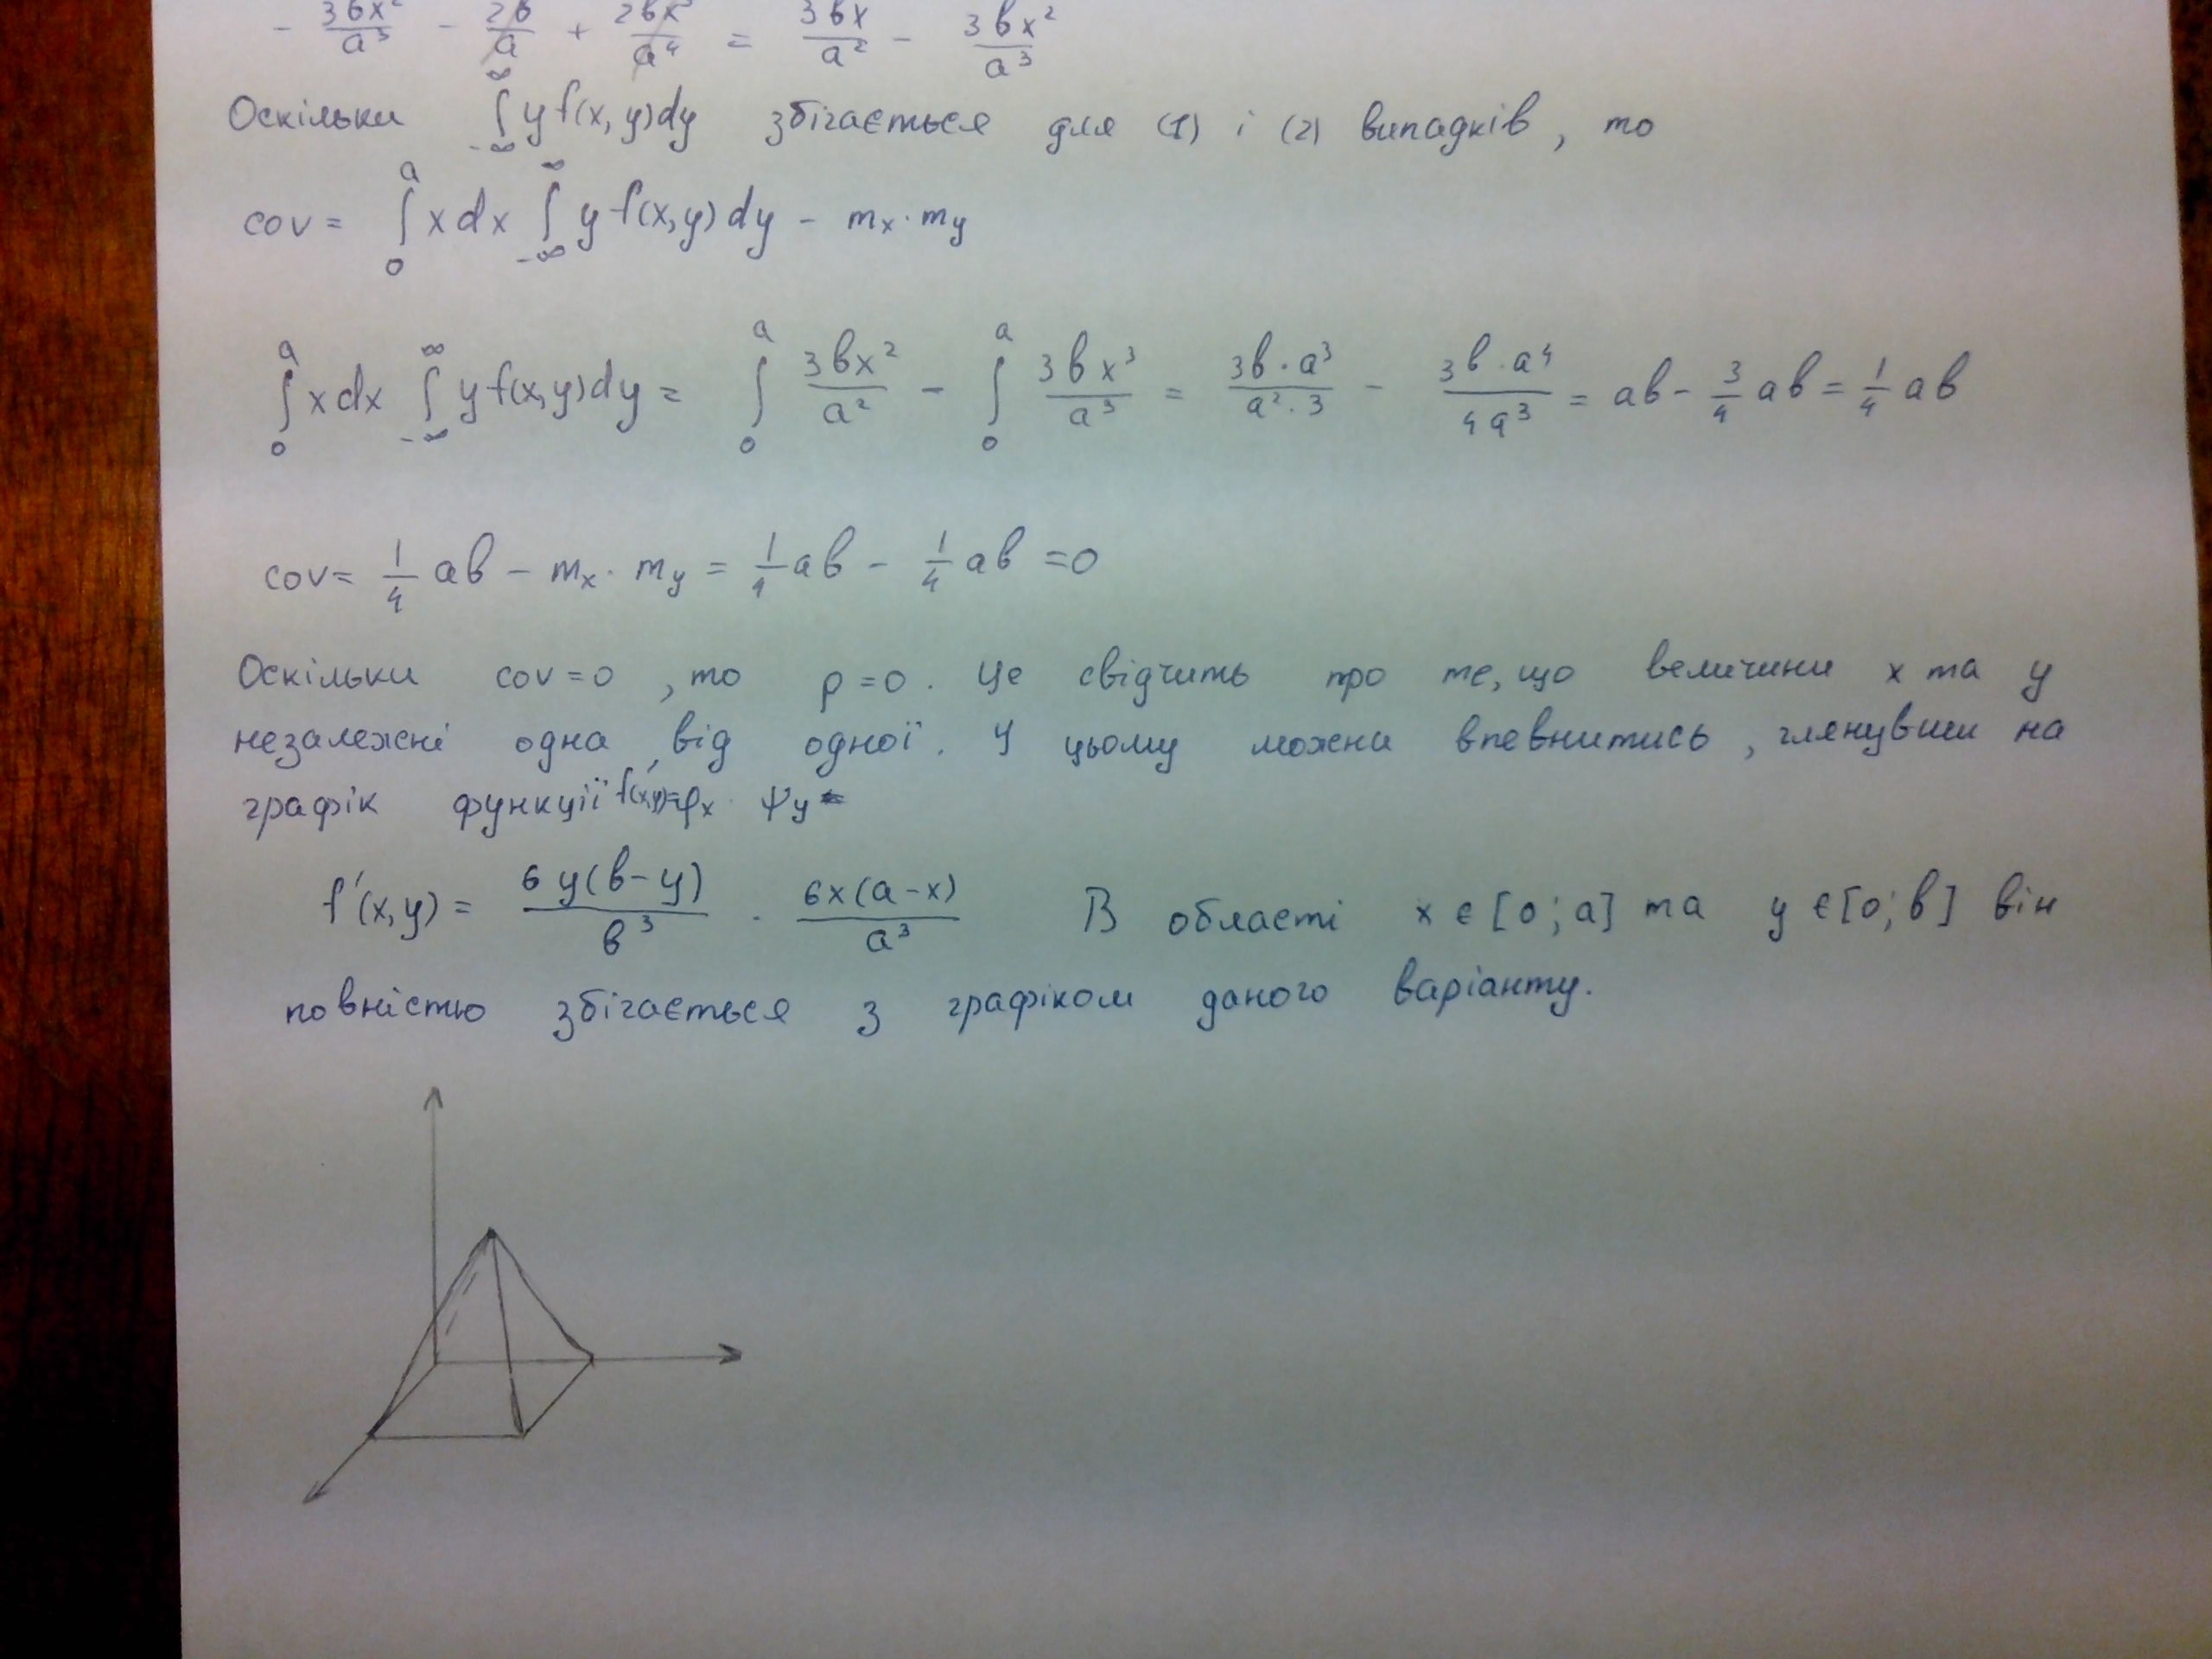 - 3вx²/a³ - 2в/a + 2вx³/a⁴ = 3вx/a² - 3вx²/a³
Оскільки ∫_{-∞}^{∞} y f(x, y)dy збігається для (1) і (2) випадків, то
cov = ∫_0^a x dx ∫_{-∞}^{∞} y f(x,y) dy - mₓ · m_y
∫_0^a x dx ∫_{-∞}^{∞} y f(x,y)dy = ∫_0^a 3вx²/a² - ∫_0^a 3вx³/a³ = 3в·a³/a²·3 - 3в·a⁴/4a³ = aв - 3/4 aв = 1/4 aв
cov = 1/4 aв - mₓ · m_y = 1/4 aв - 1/4 aв = 0
Оскільки cov = 0, то ρ = 0. Це свідчить про те, що величини x та y
незалежні одна від одної. У цьому можна впевнитись, глянувши на
графік функції f'(x,y)=φₓ · ψ_y
f'(x,y) = 6y(в-y)/в³ · 6x(a-x)/a³ В області x є [0; a] та y є [0; в] він
повністю збігається з графіком даного варіанту.